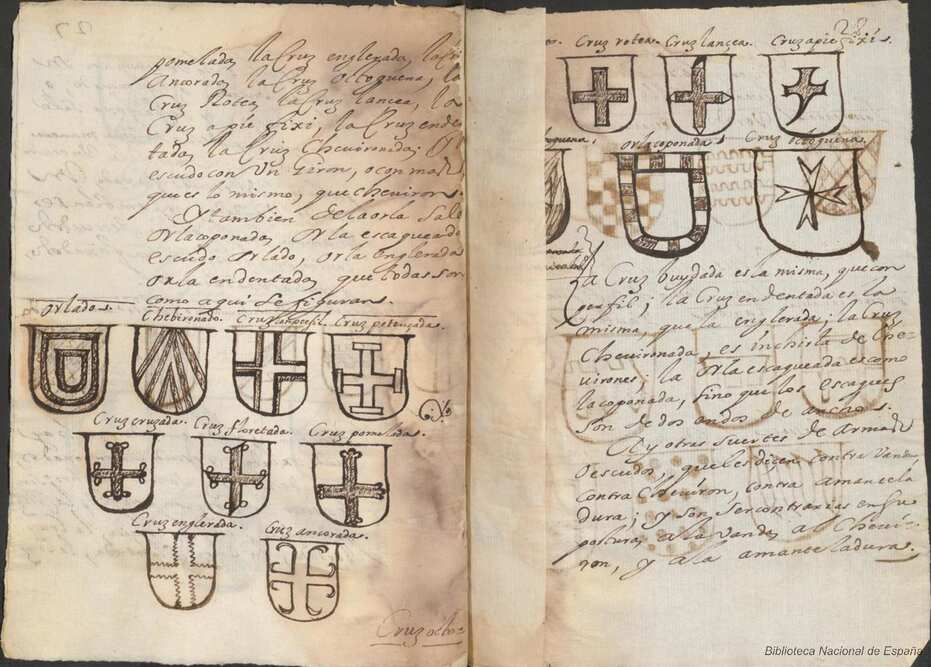 pomelada, la Cruz englerada, la Cruz
Ancorada, la Cruz Octoguena, la
Cruz Rotea, la Cruz lancea, la
Cruz apie fixi, la Cruz enden
tada, la Cruz Cheuironada; O
escudo con Un Giron, o con mas,
que es lo mismo, que cheuiron.
Y tambien dela orla sale
orla coponada, orla escaqueada
escudo orlado, orla englerada
orla endentada, que todas son
como aqui se figuran.
Orlado.
Chebironado.
Cruz
Cruz potenzada.
Cruz cruzada.
Cruz floretada.
Cruz pomelada.
Cruz englerada.
Cruz ancorada.
Cruz octo=
Cruz rotea.
Cruz lancea.
Cruz apie fixi.
orla coponada
Cruz octoguena.
la Cruz buydada es la misma, que con
perfil; la Cruz endentada es la
misma, que la englerada; la Cruz
Cheuironada, es inchista de Che-
uirones; la orla escaqueada es como
la coponada, sino que los escaques
son de dos en dos de anchos.
Ay otras suertes de Armas
O escudos, que les dicen contra Vanda,
Contra Cheuiron, contra amantela
dura; y son ser contrarias en su
postura, a la Vanda, al Cheui-
ron, y a la amanteladura.
Biblioteca Nacional de España